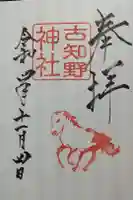 奉拝
古知野
神社
令和四年十一月四日